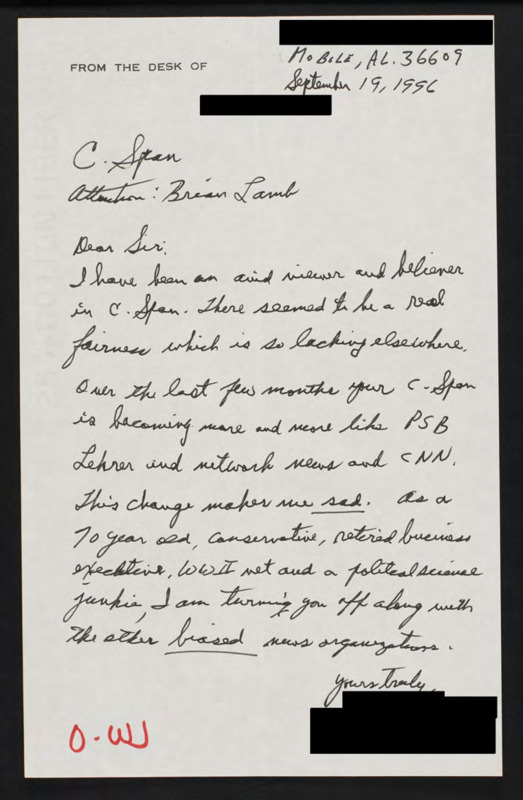 FROM THE DESK OF
MOBILE, AL. 36609
September 19, 1996
C. Span
Attention: Brian Lamb
Dear Sir:
I have been an avid viewer and believer
in C. Span. There seemed to be a real
fairness which is so lacking elsewhere.
Over the last few months your C-Span
is becoming more and more like PSB
Lehrer and network news and CNN.
This change makes me sad. As a
70 year old, conservative, retired business
executive, WWII vet and a political science
junkie, I am turning you off along with
the other biased news organizations.
yours truly,
O-W